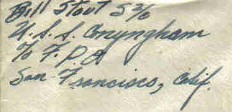 Bill Stout S 2/c
U.S.S. Conyngham
℅ F.P.O
San Francisco, Calif.